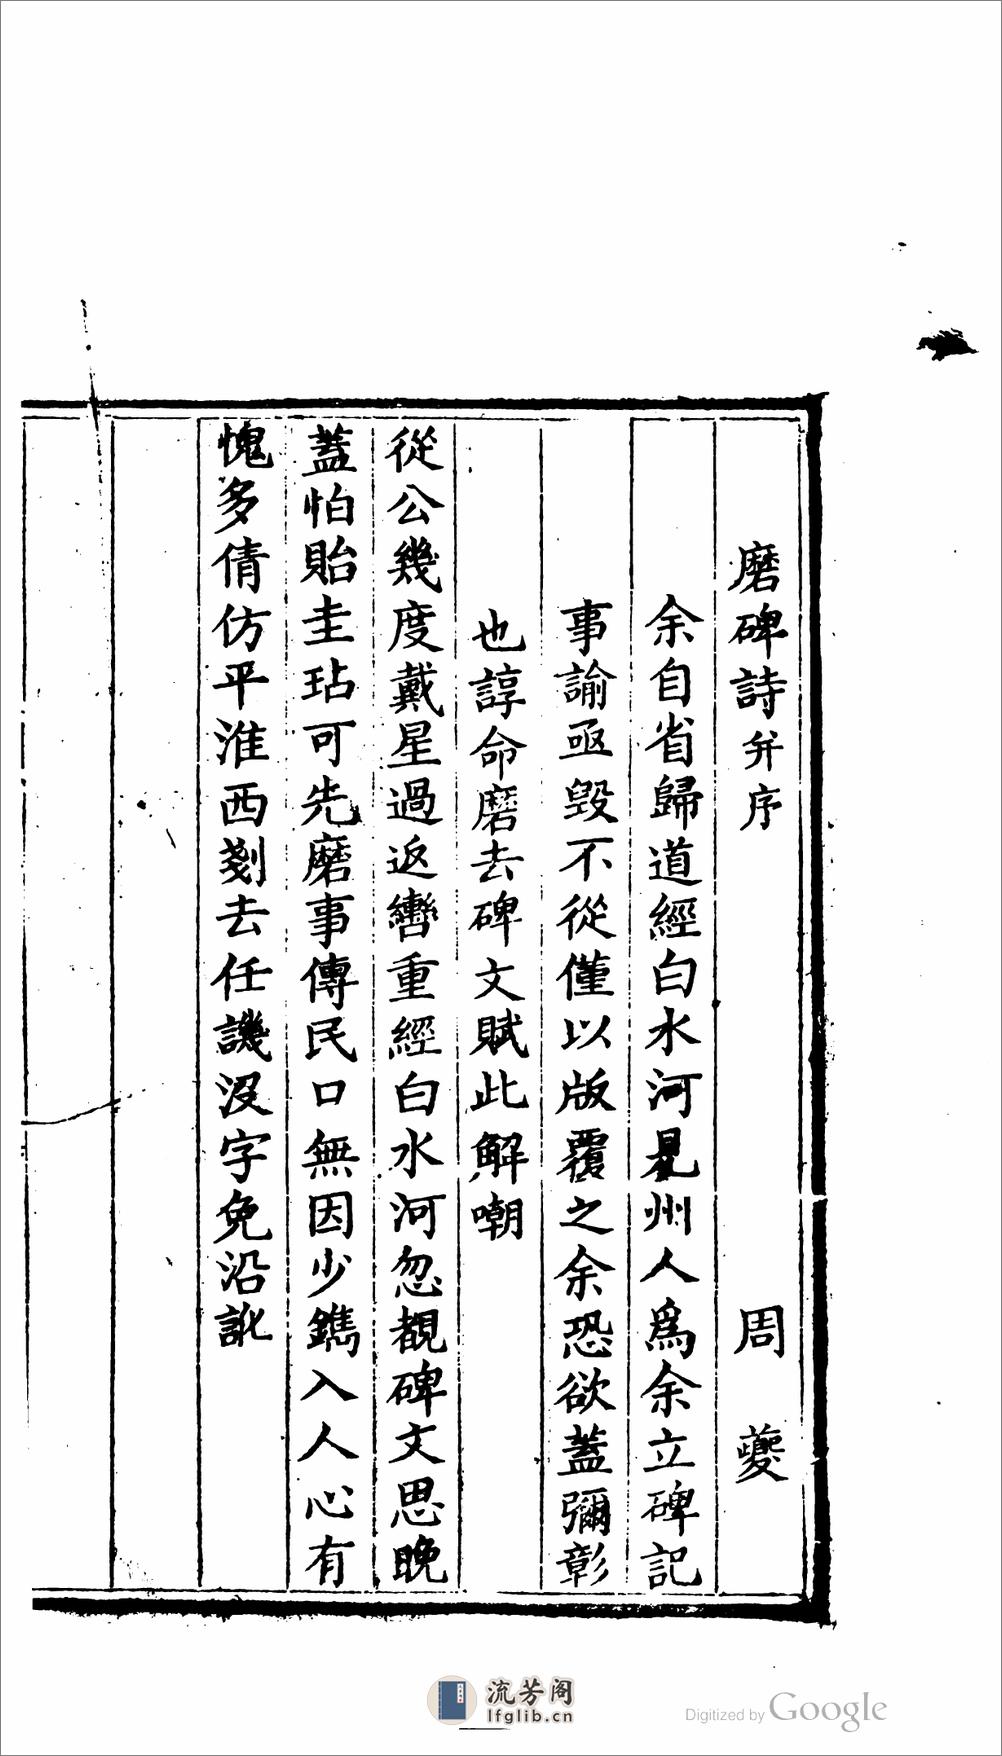 磨碑詩并序 周夔
余自省歸道經白水河見州人爲余立碑記
事諭亟毀不從僅以版覆之余恐欲蓋彌彰
也諄命磨去碑文賦此解嘲
從公幾度戴星過返轡重經白水河忽覩碑文思晚
蓋怕貽圭玷可先磨事傳民口無因少鐫入人心有
愧多倩仿平淮西剗去任譏沒字免沿訛
流芳阁
lfglib.cn
Digitized by Google